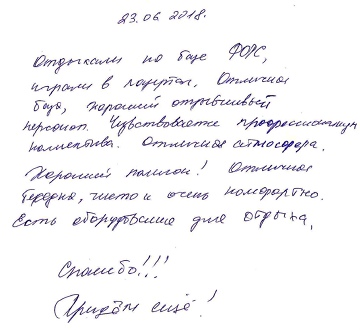 23.06.2018.
Отдыхали на базе ФОРС,
играли в лазертаг. Отличная
база, хороший отзывчивый
персонал. Чувствовается профессионализм
коллектива. Отличная атмосфера.
Хороший полигон! Отличная
беседка, чисто и очень комфортно.
Есть оборудование для отдыха.
Спасибо!!!
Придём ещё!